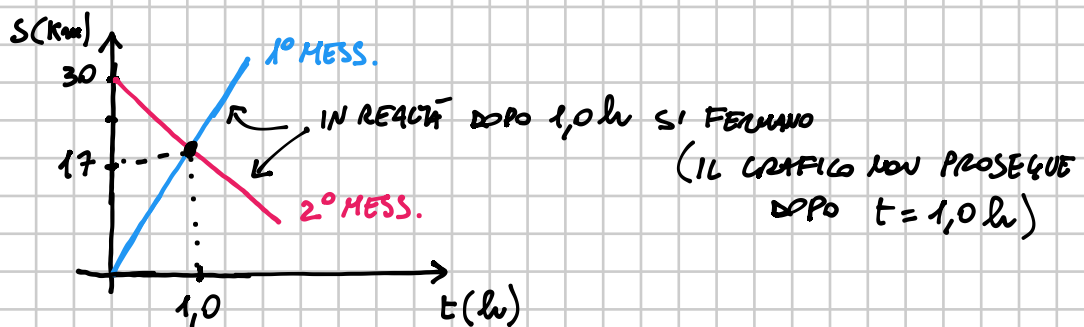 S(Km)
30
1° MESS.
IN REALTÀ DOPO 1,0 h SI FERMANO
17
(IL GRAFICO NON PROSEGUE
DOPO t = 1,0 h)
2° MESS.
1,0
t(h)